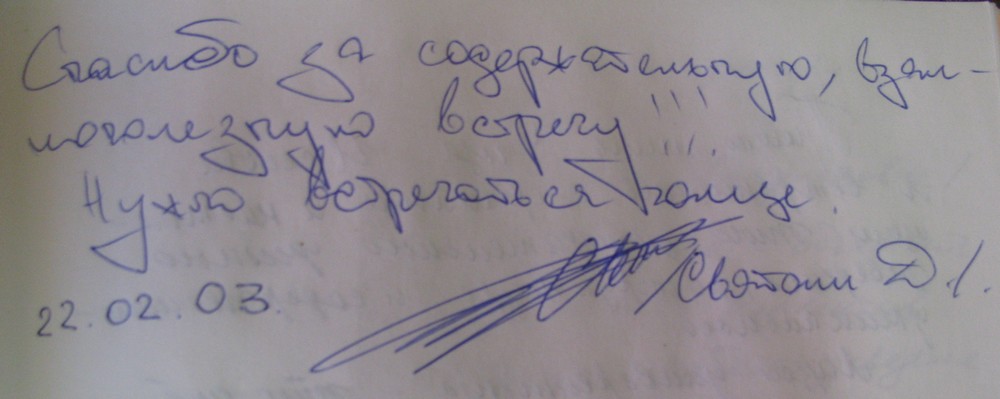 Спасибо за содержательную, взаи-
мополезную встречу!!!
Нужно встречаться чаще.
22.02.03. Святош Д.